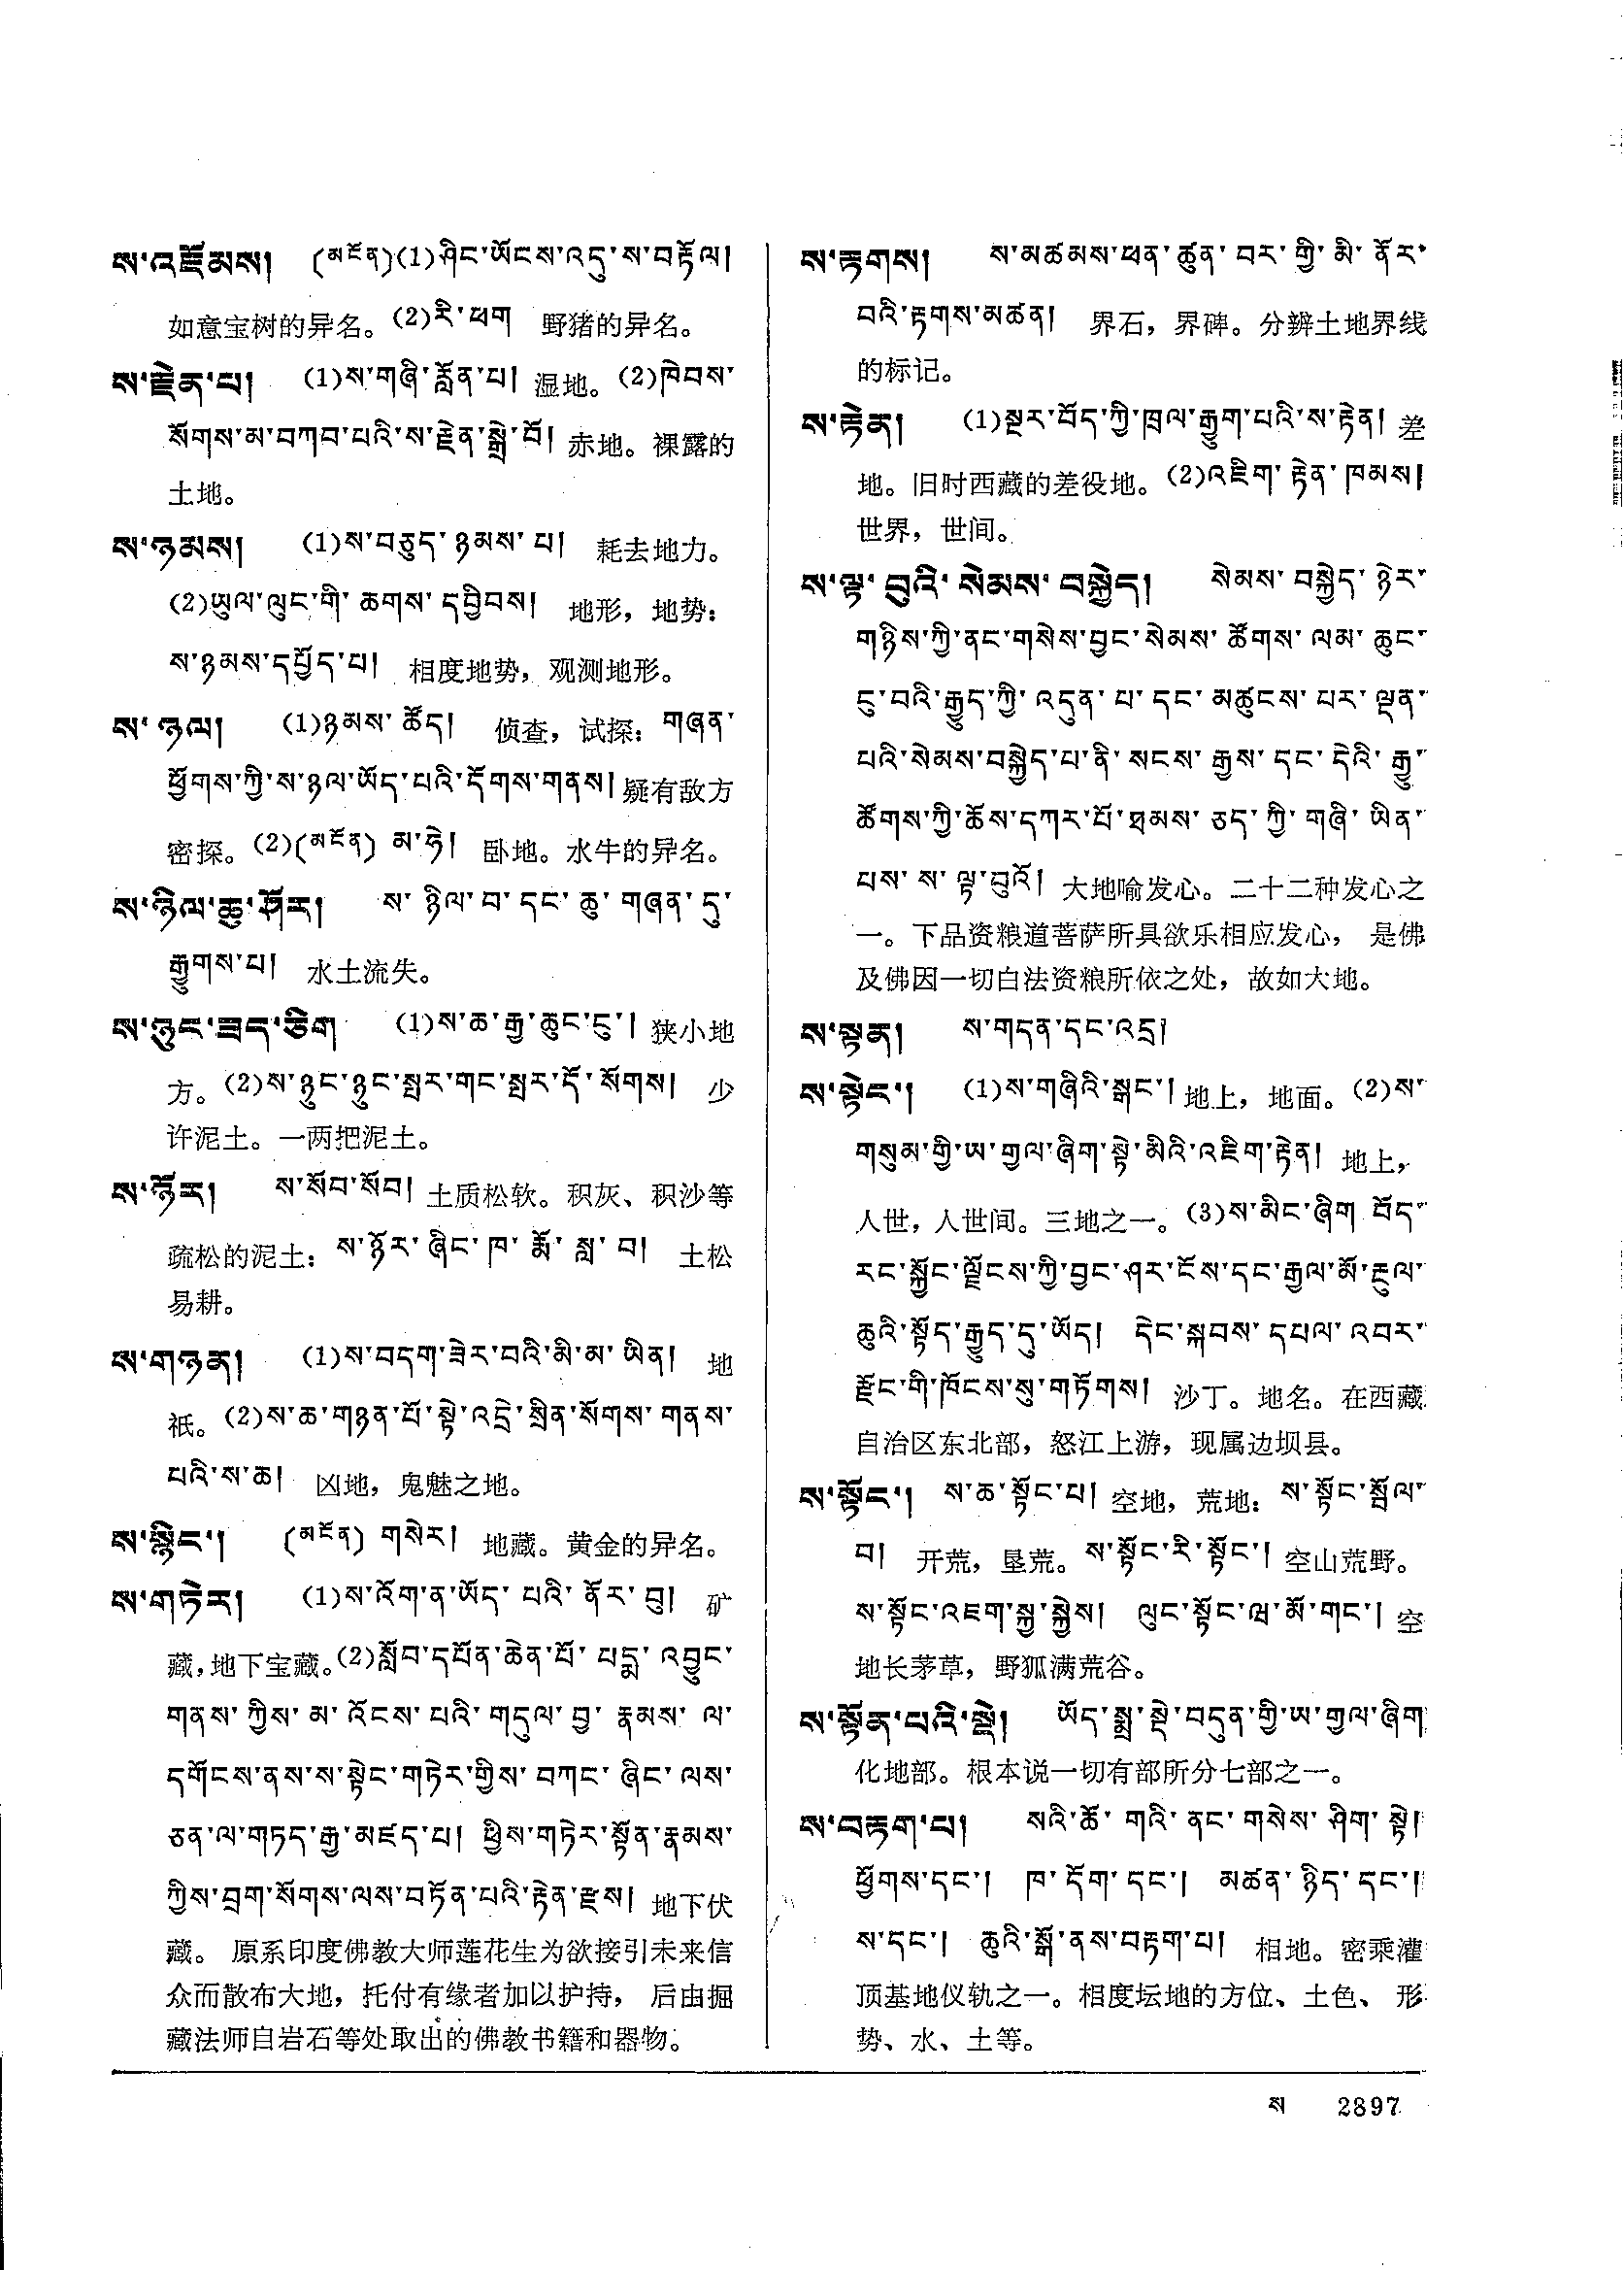 ས་འཛོམས། (མངོན)(1)ཤིང་ཡོངས་འདུ་ས་བརྟོལ།
如意宝树的异名。(2)རི་ཕག 野猪的异名。
ས་རྗེན་པ། (1)ས་གཞི་རློན་པ། 湿地。(2)ཁེབས་
སོགས་མ་བཀབ་པའི་ས་རྗེན་སྒྲེ་བོ། 赤地。裸露的
土地。
ས་ཉམས། (1)ས་བཅུད་ཉམས་པ། 耗去地力。
(2)ཡུལ་ལུང་གི་ཆགས་དབྱིབས། 地形，地势：
ས་ཉམས་དཔྱོད་པ། 相度地势，观测地形。
ས་ཉལ། (1)ཉམས་ཚོད། 侦查，试探：གཞན་
ཕྱོགས་ཀྱི་ས་ཉལ་ཡོད་པའི་དོགས་གནས། 疑有敌方
密探。(2)(མངོན) མ་ཧེ། 卧地。水牛的异名。
ས་ཉིལ་ཆུ་ཤོར། ས་ཉིལ་བ་དང་ཆུ་གཞན་དུ་
རྒྱུགས་པ། 水土流失。
ས་ཉུང་ཟད་ཅིག (1)ས་ཆ་རྒྱ་ཆུང་ངུ་། 狭小地
方。(2)ས་ཉུང་ཉུང་སྤར་གང་སྤར་དོ་སོགས། 少
许泥土。一两把泥土。
ས་ཉོར། ས་སོབ་སོབ། 土质松软。积灰、积沙等
疏松的泥土：ས་ཉོར་ཞིང་ཁ་རྨོ་སླ་བ། 土松
易耕。
ས་གཉན། (1)ས་བདག་ཟེར་བའི་མི་མ་ཡིན། 地
祇。(2)ས་ཆ་གཉན་པོ་སྟེ་འདྲེ་སྲིན་སོགས་གནས་
པའི་ས་ཆ། 凶地，鬼魅之地。
ས་སྙིང་། (མངོན) གསེར། 地藏。黄金的异名。
ས་གཏེར། (1)ས་འོག་ན་ཡོད་པའི་ནོར་བུ། 矿
藏，地下宝藏。(2)སློབ་དཔོན་ཆེན་པོ་པདྨ་འབྱུང་
གནས་ཀྱིས་མ་འོངས་པའི་གདུལ་བྱ་རྣམས་ལ་
དགོངས་ནས་ས་སྟེང་གཏེར་གྱིས་བཀང་ཞིང་ལས་
ཅན་ལ་གཏད་རྒྱ་མཛད་པ། ཕྱིས་གཏེར་སྟོན་རྣམས་
ཀྱིས་བྲག་སོགས་ལས་བཏོན་པའི་རྟེན་རྫས། 地下伏
藏。 原系印度佛教大师莲花生为欲接引未来信
众而散布大地，托付有缘者加以护持， 后由掘
藏法师自岩石等处取出的佛教书籍和器物。
ས་རྟགས། ས་མཚམས་ཕན་ཚུན་བར་གྱི་མི་ནོར་
བའི་རྟགས་མཚན། 界石，界碑。分辨土地界线
的标记。
ས་རྟེན། (1)སྔར་བོད་ཀྱི་ཁྲལ་རྒྱུག་པའི་ས་རྟེན། 差
地。旧时西藏的差役地。(2)འཇིག་རྟེན་ཁམས།
世界，世间。
ས་ལྟ་བུའི་སེམས་བསྐྱེད། སེམས་བསྐྱེད་ཉེར་
གཉིས་ཀྱི་ནང་གསེས་བྱང་སེམས་ཚོགས་ལམ་ཆུང་
ངུ་བའི་རྒྱུད་ཀྱི་འདུན་པ་དང་མཚུངས་པར་ལྡན་
པའི་སེམས་བསྐྱེད་པ་ནི་སངས་རྒྱས་དང་དེའི་རྒྱུ་
ཚོགས་ཀྱི་ཆོས་དཀར་པོ་ཐམས་ཅད་ཀྱི་གཞི་ཡིན་
པས་ས་ལྟ་བུའོ། 大地喻发心。二十二种发心之
一。下品资粮道菩萨所具欲乐相应发心， 是佛
及佛因一切白法资粮所依之处，故如大地。
ས་སྟན། ས་གདན་དང་འདྲ།
ས་སྟེང་། (1)ས་གཞིའི་སྒང་། 地上，地面。(2)ས་
གསུམ་གྱི་ཡ་གྱལ་ཞིག་སྟེ་མིའི་འཇིག་རྟེན། 地上，
人世，人世间。三地之一。(3)ས་མིང་ཞིག བོད་
རང་སྐྱོང་ལྗོངས་ཀྱི་བྱང་ཤར་ངོས་དང་རྒྱལ་མོ་རྔུལ་
ཆུའི་སྟོད་རྒྱུད་དུ་ཡོད། དེང་སྐབས་དཔལ་འབར་
རྫོང་གི་ཁོངས་སུ་གཏོགས། 沙丁。地名。在西藏
自治区东北部，怒江上游，现属边坝县。
ས་སྟོང་། ས་ཆ་སྟོང་པ། 空地，荒地：ས་སྟོང་སློལ་
བ། 开荒，垦荒。ས་སྟོང་རི་སྟོང་། 空山荒野。
ས་སྟོང་འཇག་སྐྱ་སྐྱེས། ལུང་སྟོང་ཝ་མོ་གང་། 空
地长茅草，野狐满荒谷。
ས་སྟོན་པའི་སྡེ། ཡོད་སྨྲ་སྡེ་བདུན་གྱི་ཡ་གྱལ་ཞིག
化地部。根本说一切有部所分七部之一。
ས་བརྟག་པ། སའི་ཆོ་གའི་ནང་གསེས་ཤིག་སྟེ།
ཕྱོགས་དང་། ཁ་དོག་དང་། མཚན་ཉིད་དང་།
ས་དང་། ཆུའི་སྒོ་ནས་བརྟག་པ། 相地。密乘灌
顶基地仪轨之一。相度坛地的方位、土色、 形
势、水、土等。
ས 2897